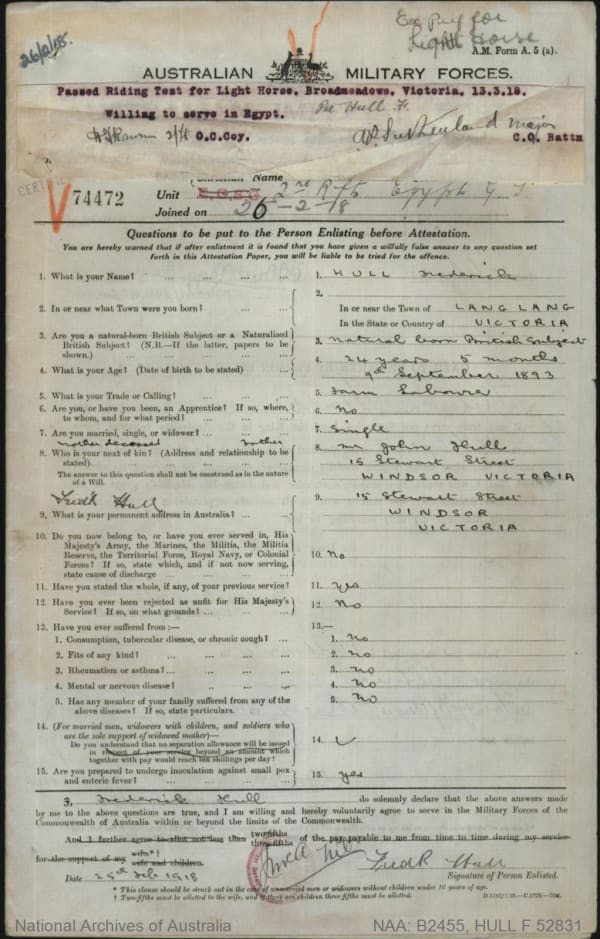 26/2/18.
Light Horse
A.M. Form A. 5 (a).
AUSTRALIAN MILITARY FORCES.
Passed Riding Test for Light Horse, Broadmeadows, Victoria. 13.3.18.
Willing to serve in Egypt. Pte Hull F.
O.C.Coy. Major
C.O. Battn
Name
74472
Unit 2nd Rfts Egypt
Joined on 26-2-18
Questions to be put to the Person Enlisting before Attestation.
You are hereby warned that if after enlistment it is found that you have given a wilfully false answer to any question set
forth in this Attestation Paper, you will be liable to be tried for the offence.
1. What is your Name? ... 1. HULL Frederick
2. In or near what Town were you born? ... 2. In or near the Town of LANG LANG
In the State or Country of VICTORIA
3. Are you a natural-born British Subject or a Naturalized
British Subject? (N.B.—If the latter, papers to be
shown.) ... 3. Natural born British Subject
4. What is your Age? (Date of birth to be stated) ... 4. 24 years 5 months
9th September 1893
5. What is your Trade or Calling? ... 5. Farm Labourer
6. Are you, or have you been, an Apprentice? If so, where,
to whom, and for what period? ... 6. No
7. Are you married, single, or widower? ... 7. Single
mother deceased
8. Who is your next of kin? (Address and relationship to be
stated) ... 8. Mr John Hull
15 Stewart Street
WINDSOR VICTORIA
The answer to this question shall not be construed as in the nature
of a Will.
Fredk Hull
9. What is your permanent address in Australia? ... 9. 15 Stewart Street
WINDSOR
VICTORIA
10. Do you now belong to, or have you ever served in, His
Majesty's Army, the Marines, the Militia, the Militia
Reserve, the Territorial Force, Royal Navy, or Colonial
Forces? If so, state which, and if not now serving,
state cause of discharge ... 10. No
11. Have you stated the whole, if any, of your previous service? 11. Yes
12. Have you ever been rejected as unfit for His Majesty's
Service? If so, on what grounds? ... 12. No
13. Have you ever suffered from :— 13.—
1. Consumption, tubercular disease, or chronic cough? ... 1. No
2. Fits of any kind? ... 2. No
3. Rheumatism or asthma? ... 3. No
4. Mental or nervous disease? ... 4. No
5. Has any member of your family suffered from any of the
above diseases? If so, state particulars. 5. No
14. (For married men, widowers with children, and soldiers who
are the sole support of widowed mother)—
Do you understand that no separation allowance will be issued
in respect of your service beyond an amount which
together with pay would reach ten shillings per day? 14.
15. Are you prepared to undergo inoculation against small pox
and enteric fever? ... 15. Yes
I, Frederick Hull do solemnly declare that the above answers made
by me to the above questions are true, and I am willing and hereby voluntarily agree to serve in the Military Forces of the
Commonwealth of Australia within or beyond the limits of the Commonwealth.
And I further agree to allot not less than two-fifths three-fifths of the pay payable to me from time to time during my service
for the support of my wife*† wife and children.
Date 25th Feb 1918 Fredk Hull
Signature of Person Enlisted.
* This clause should be struck out in the case of unmarried men or widowers without children under 16 years of age.
† Two-fifths must be allotted to the wife, and if there are children three-fifths must be allotted.
National Archives of Australia
NAA: B2455, HULL F 52831